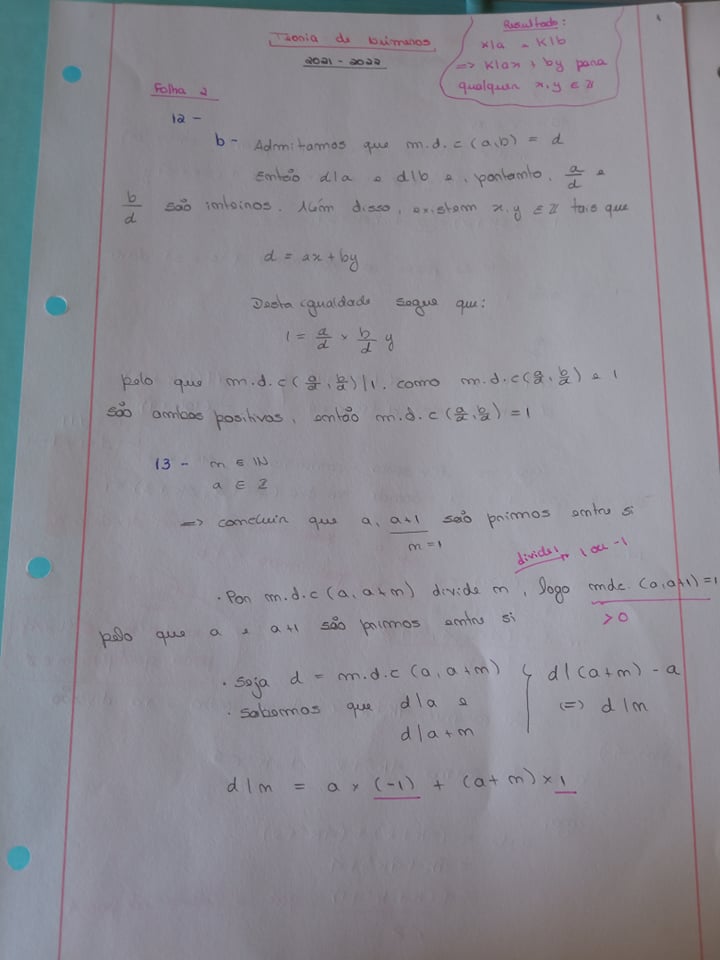 Teoria de Números
2021 - 2022
Resultado:
k|a e k|b
=> k|ax + by para
qualquer x, y ∈ ℤ
Folha 2
12 -
b - Admitamos que m.d.c (a,b) = d
Então d|a e d|b e, portanto, a/d e
b/d são inteiros. Além disso, existem x, y ∈ ℤ tais que
d = ax + by
Desta igualdade segue que:
1 = a/d x b/d y
pelo que m.d.c (a/d, b/d)|1. como m.d.c (a/d, b/d) e 1
são ambos positivos, então m.d.c (a/d, b/d) = 1
13 - m ∈ ℕ
a ∈ ℤ
=> concluir que a, a+1 são primos entre si
m = 1
divide 1 → 1 ou -1
· Por m.d.c (a, a+m) divide m, logo mdc. (a, a+1) = 1
> 0
pelo que a e a+1 são primos entre si
· Seja d = m.d.c (a, a+m) { d|(a+m) - a
· Sabemos que d|a e (=) d|m
d|a+m
d|m = a x (-1) + (a+m) x 1